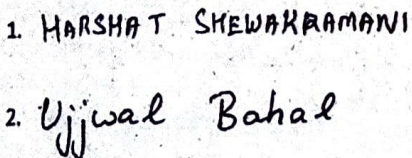 1. HARSHAT SHEWAKRAMANI
2. Ujjwal Bahal